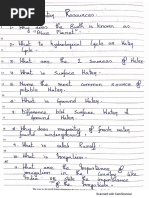 Resources
1- Why does the Earth is known as
"Blue Planet".
2- What is hydrological cycle or Water
Cycle
3- What are the 2 sources of Water.
4- What is Surface Water.
5- Name the most common source of
potable Water.
6- What is Ground Water.
7- Difference b/w Surface Water &
Ground Water.
8- Why does majority of fresh water
found underground?
9- What is rainfall.
10- What is Irrigation.
11- What are the importance of
irrigation in the Country like
Scanned with CamScanner